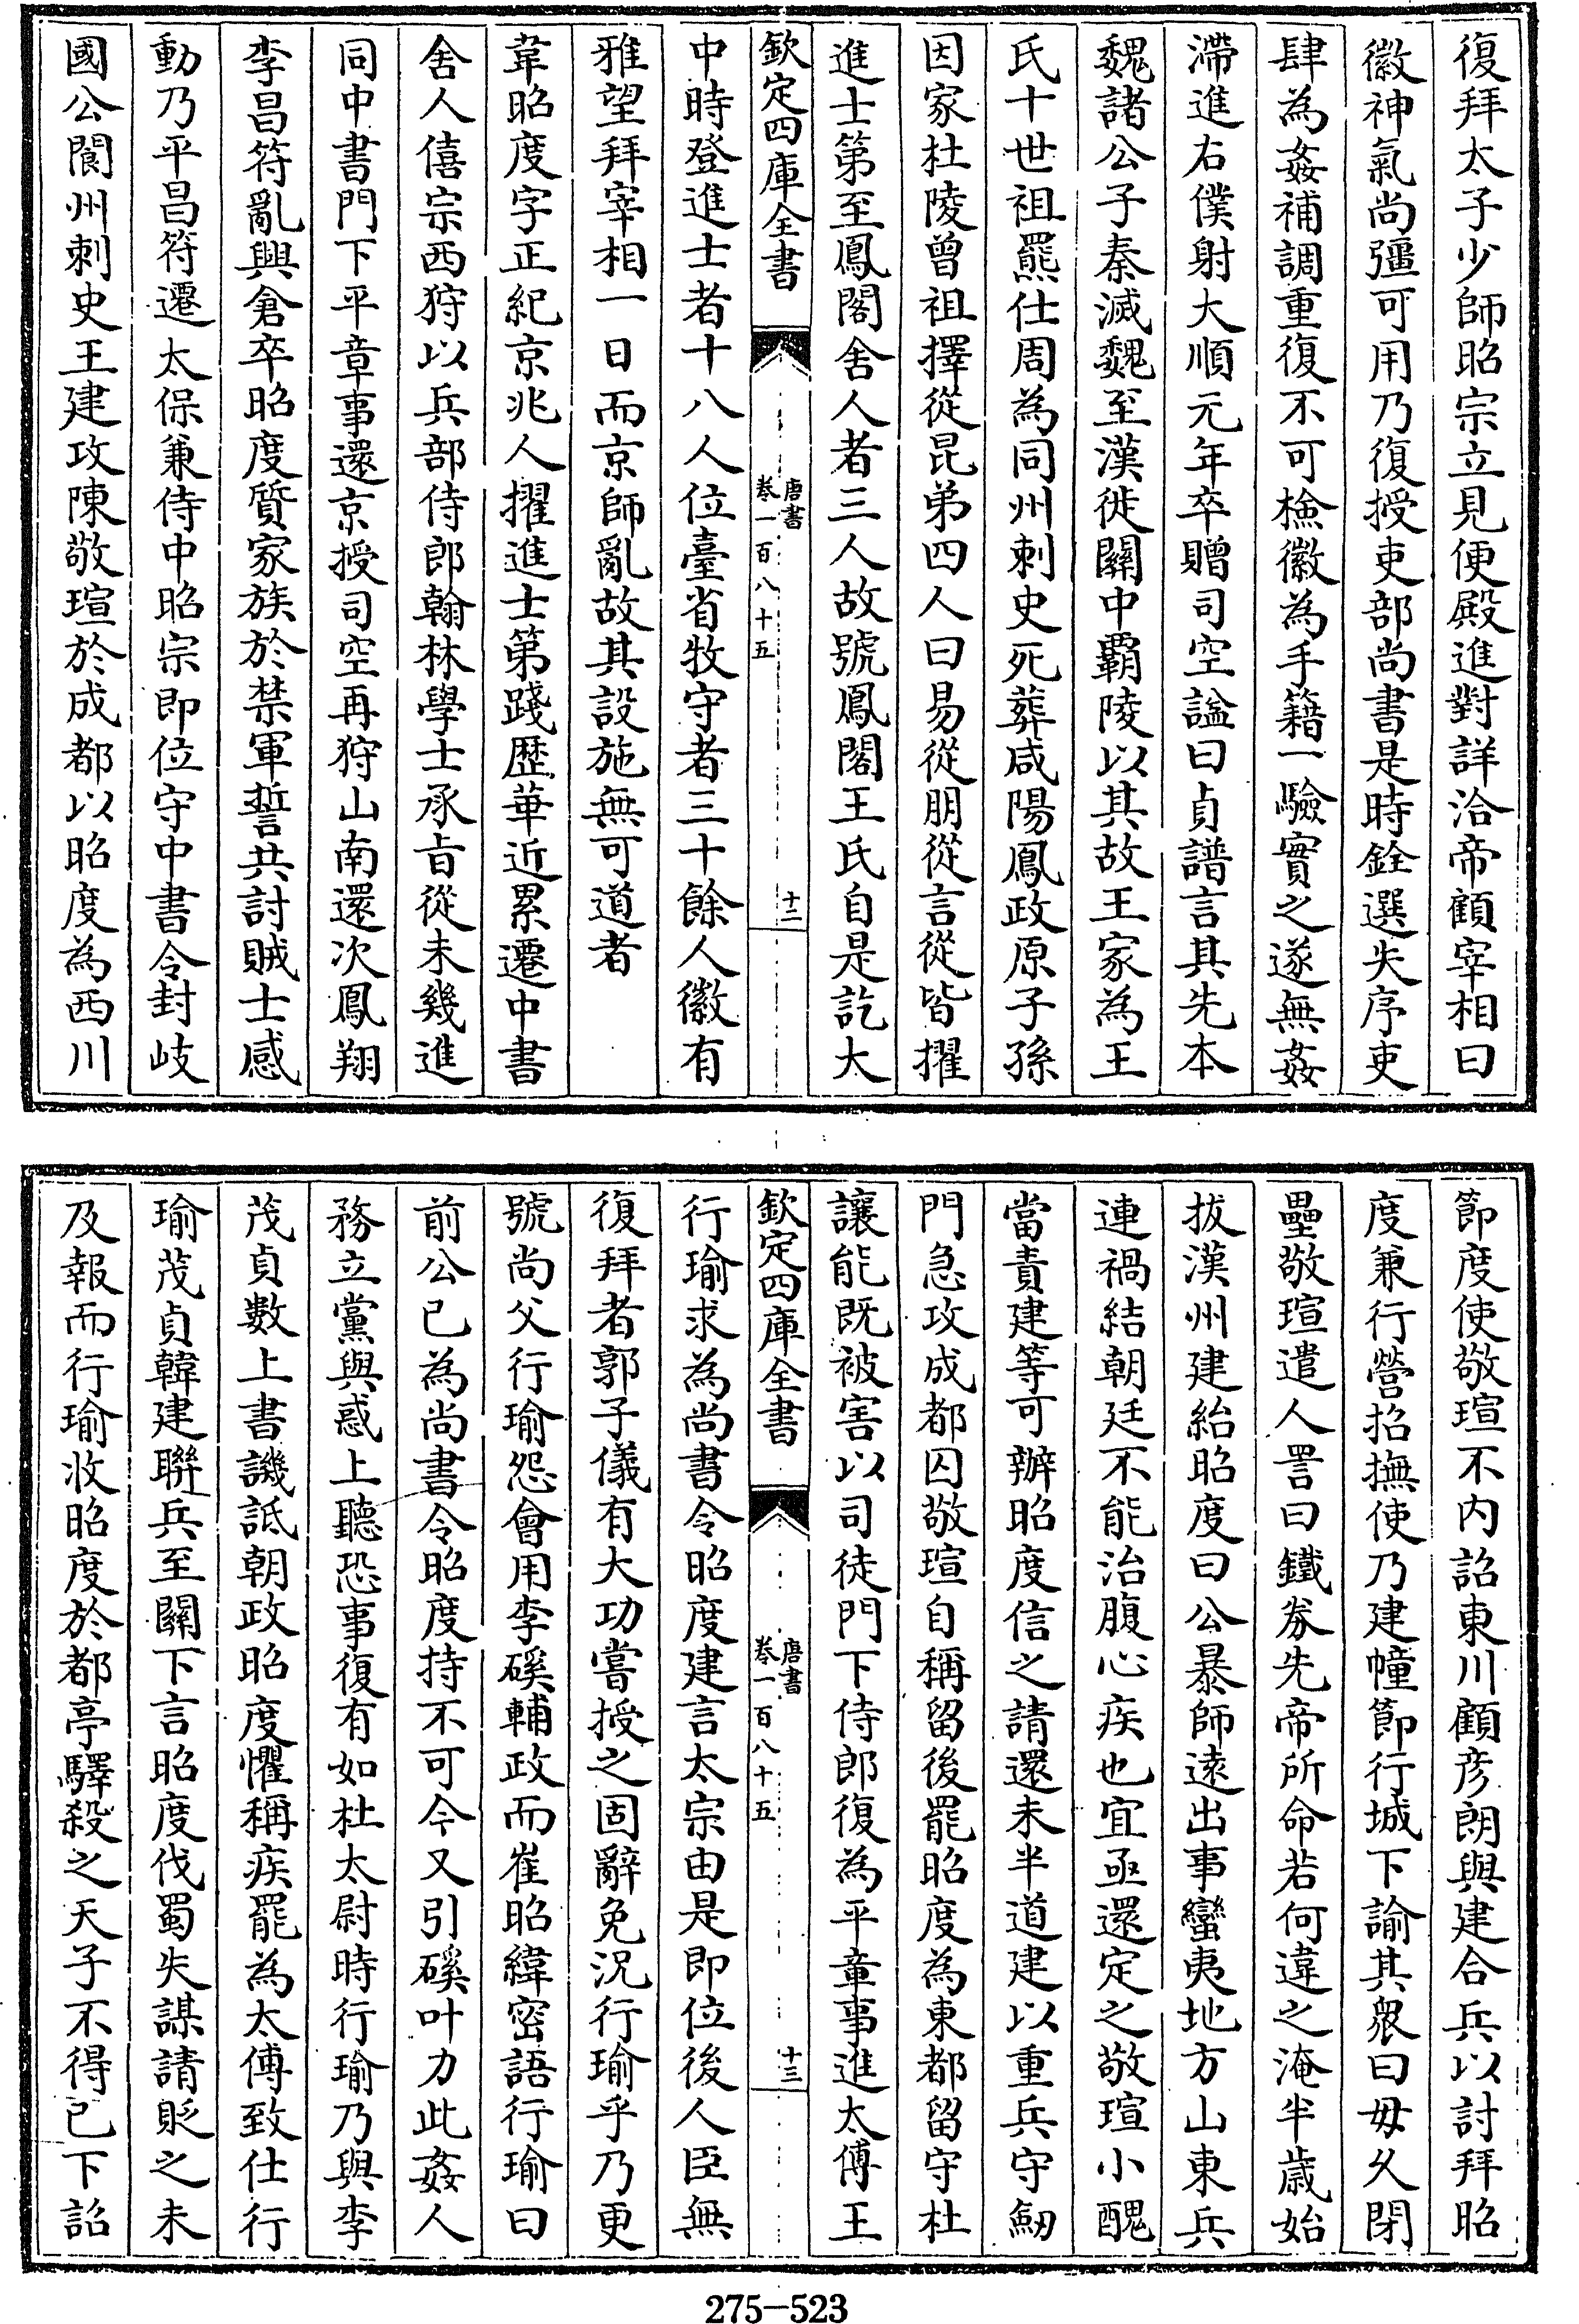 復拜太子少師昭宗立見便殿進對詳洽帝顧宰相曰
徽神氣尚彊可用乃復授吏部尚書是時銓選失序吏
肆為姦補調重復不可檢徽為手籍一驗實之遂無姦
滯進右僕射大順元年卒贈司空諡曰貞譜言其先本
魏諸公子秦滅魏至漢徙關中霸陵以其故王家為王
氏十世祖羆仕周為同州刺史死葬咸陽鳳政原子孫
因家杜陵曾祖擇從昆弟四人曰易從朋從言從皆擢
進士第至鳳閣舍人者三人故號鳳閣王氏自是訖大
欽定四庫全書
唐書
卷一百八十五
十二
中時登進士者十八人位臺省牧守者三十餘人徽有
雅望拜宰相一日而京師亂故其設施無可道者
韋昭度字正紀京兆人擢進士第踐歷華近累遷中書
舍人僖宗西狩以兵部侍郎翰林學士承旨從未幾進
同中書門下平章事還京授司空再狩山南還次鳳翔
李昌符亂興倉卒昭度質家族於禁軍誓共討賊士感
動乃平昌符遷太保兼侍中昭宗即位守中書令封岐
國公閬州刺史王建攻陳敬瑄於成都以昭度為西川
節度使敬瑄不內詔東川顧彥朗與建合兵以討拜昭
度兼行營招撫使乃建幢節行城下諭其衆曰毋久閉
壘敬瑄遣人詈曰鐵券先帝所命若何違之淹半歲始
拔漢州建紿昭度曰公暴師遠出事蠻夷地方山東兵
連禍結朝廷不能治腹心疾也宜亟還定之敬瑄小醜
當責建等可辦昭度信之請還未半道建以重兵守劒
門急攻成都囚敬瑄自稱留後罷昭度為東都留守杜
讓能既被害以司徒門下侍郎復為平章事進太傅王
欽定四庫全書
唐書
卷一百八十五
十三
行瑜求為尚書令昭度建言太宗由是即位後人臣無
復拜者郭子儀有大功嘗授之固辭免況行瑜乎乃更
號尚父行瑜怨會用李磎輔政而崔昭緯密語行瑜曰
前公已為尚書令昭度持不可今又引磎叶力此姦人
務立黨與惑上聽恐事復有如杜太尉時行瑜乃與李
茂貞數上書譏詆朝政昭度懼稱疾罷為太傅致仕行
瑜茂貞韓建聯兵至闕下言昭度伐蜀失謀請貶之未
及報而行瑜收昭度於都亭驛殺之天子不得已下詔
275-523